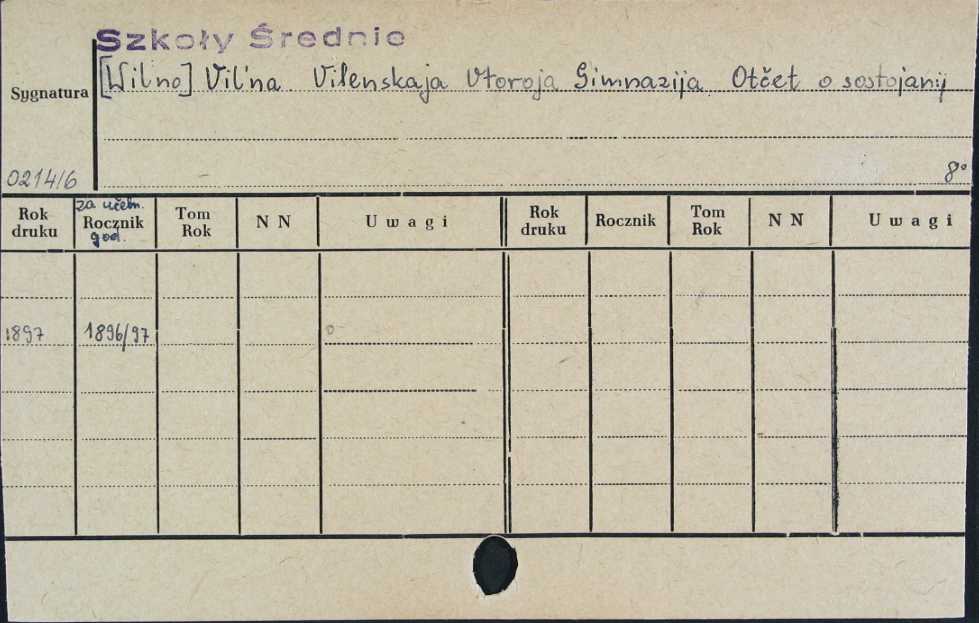 Szkoły Średnie
[Wilno] Vil'na. Vilenskaja Vtoroja Gimnazija. Otčet o sostojanij
Sygnatura
0214/6
8°
Rok druku za učebn. Rocznik god. Tom Rok N N Uwagi Rok druku Rocznik Tom Rok N N Uwagi
1897 1896/97